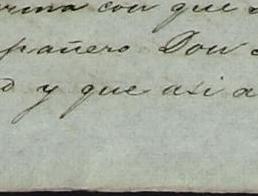 con que
pañero Don
y que asi a